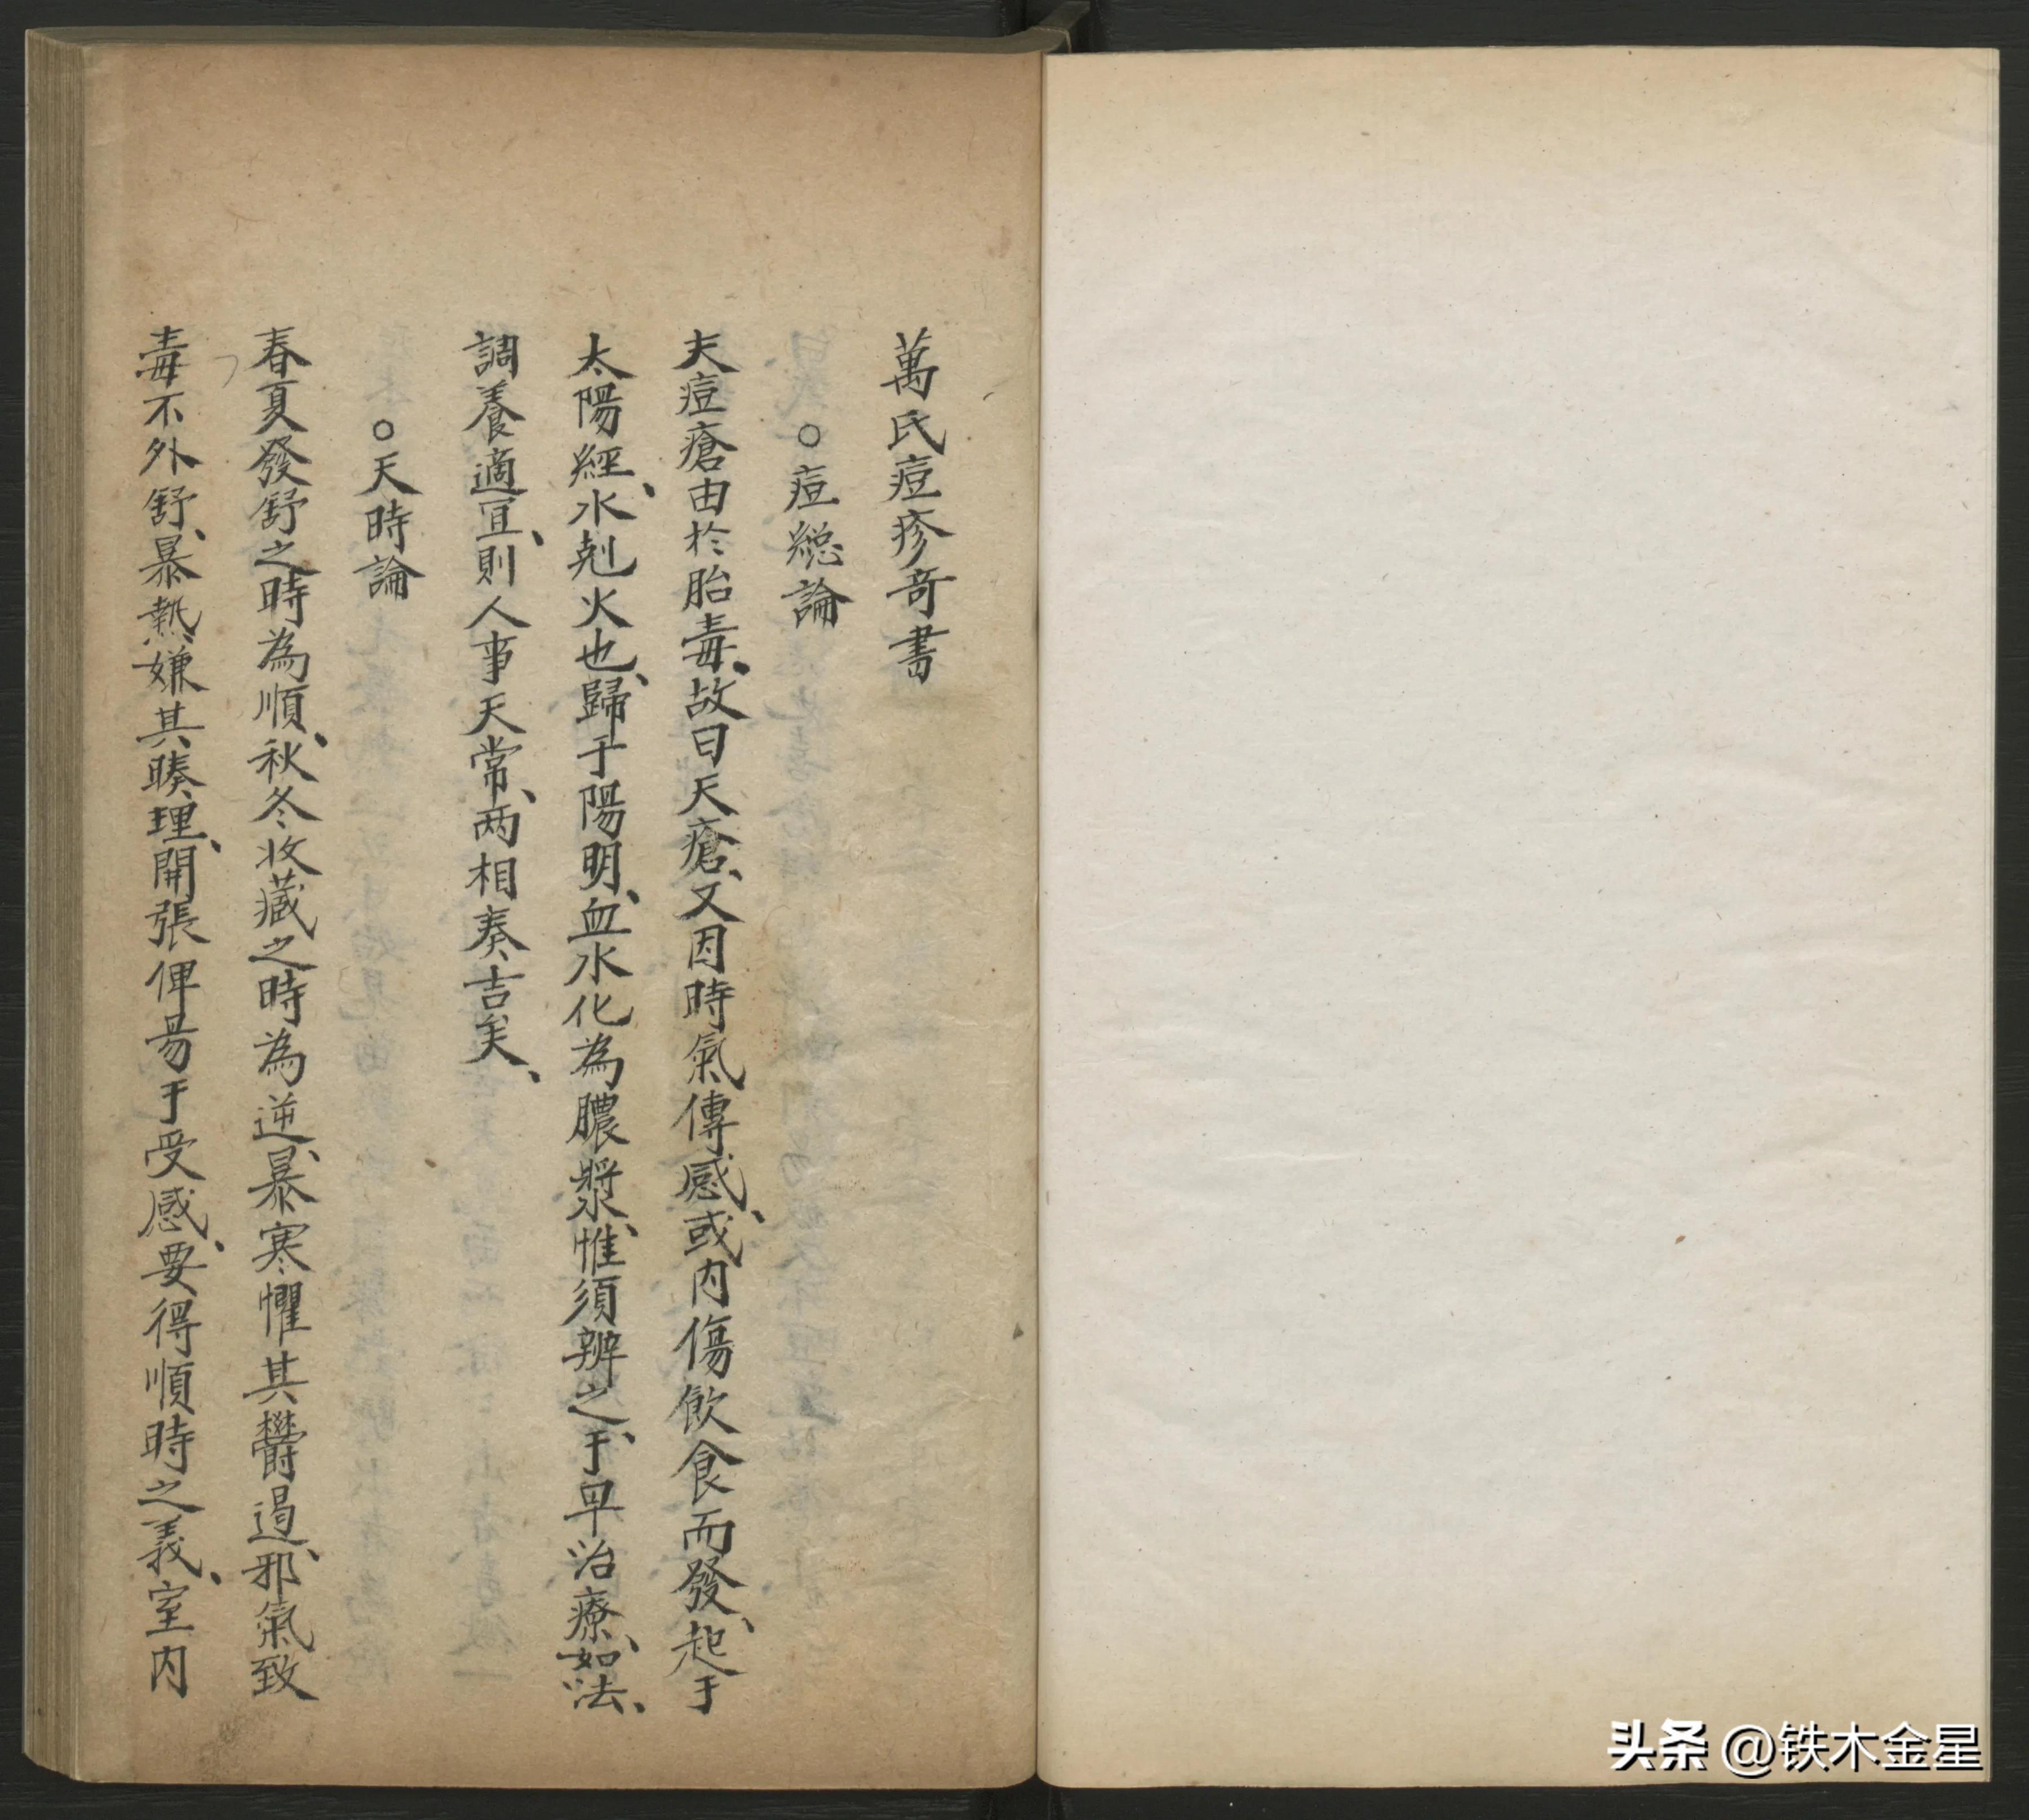 萬氏痘疹奇書
○痘總論
夫痘瘡由於胎毒、故曰天瘡、又因時氣傳感、或内傷飲食而發、起于
太陽經、水剋火也、歸于陽明、血水化為膿漿、惟須辨之、于早治療、如法、
調養適宜、則人事天常、两相奏吉矣、
○天時論
春夏發舒之時為順、秋冬收藏之時為逆、暴寒懼其欝遏、邪氣致
毒不外舒、暴熱嫌其腠理、開張俾昜于受感、要得順時之義、室内
头条 @铁木金星